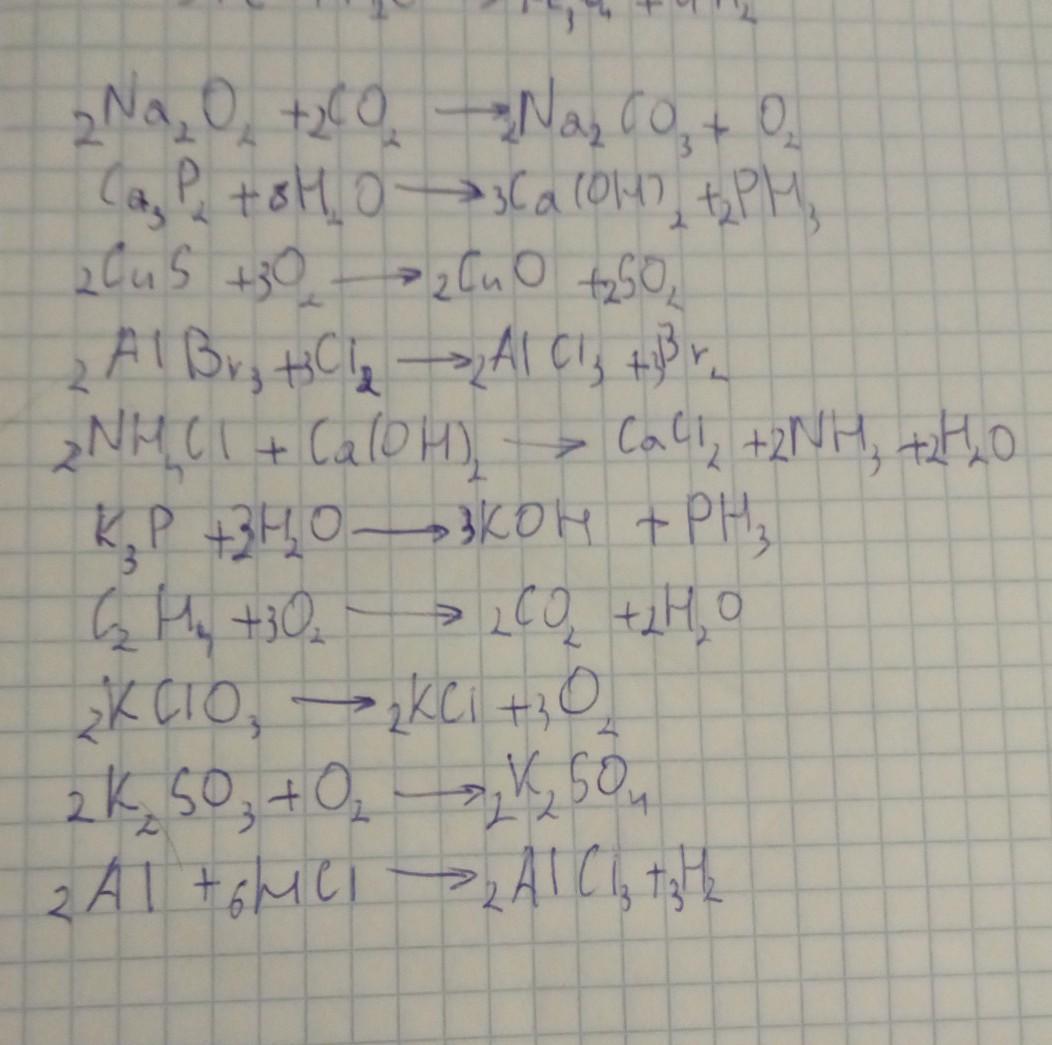 2Na₂O₂ + 2CO₂ → 2Na₂CO₃ + O₂
Ca₃P₂ + 6H₂O → 3Ca(OH)₂ + 2PH₃
2CuS + 3O₂ → 2CuO + 2SO₂
2AlBr₃ + 3Cl₂ → 2AlCl₃ + 3Br₂
2NH₄Cl + Ca(OH)₂ → CaCl₂ + 2NH₃ + 2H₂O
K₃P + 3H₂O → 3KOH + PH₃
C₂H₄ + 3O₂ → 2CO₂ + 2H₂O
2KClO₃ → 2KCl + 3O₂
2K₂SO₃ + O₂ → 2K₂SO₄
2Al + 6HCl → 2AlCl₃ + 3H₂